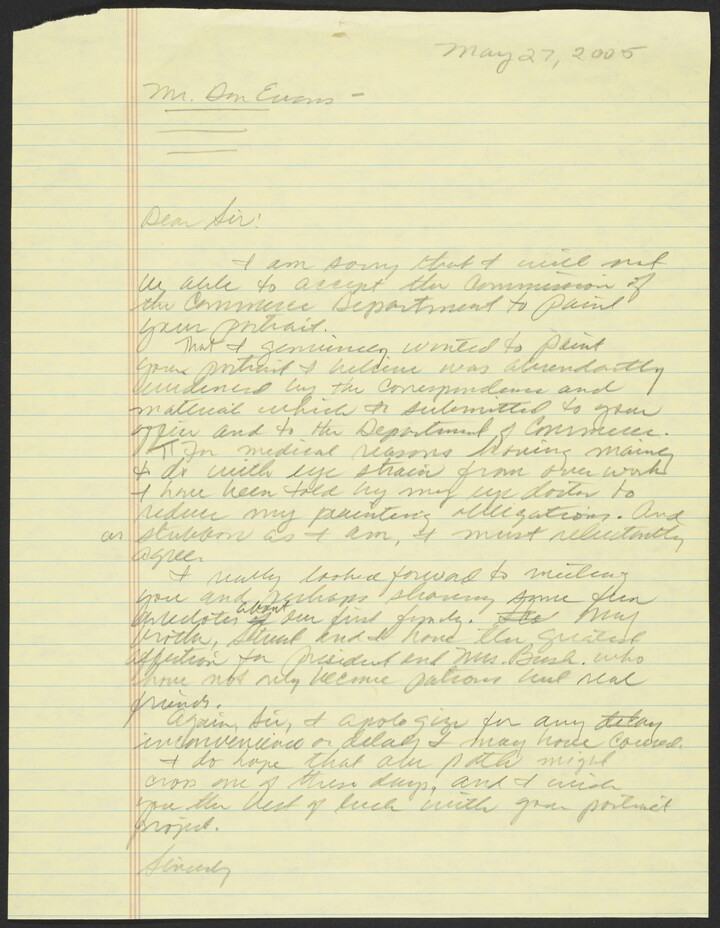 May 27, 2005
Mr. Don Evans -
Dear Sir:
I am sorry that I will not
be able to accept the Commission of
the Commerce Department to paint
your portrait.
That I genuinely wanted to paint
your portrait I believe was abundantly
evidenced by the correspondence and
material which I submitted to your
office and to the Department of Commerce.
For medical reasons having mainly
to do with eye strain from over work
I have been told by my eye doctor to
reduce my painting obligations. And
as stubborn as I am, I must reluctantly
agree.
I really looked forward to meeting
you and perhaps sharing some fun
anecdotes about our first family. My
brother, and I have the greatest
affection for president and Mrs. Bush who
have not only become patrons but real
friends.
Again, Sir, I apologize for any delay
inconvenience or delay I may have caused.
I do hope that our paths might
cross one of these days, and I wish
you the best of luck with your portrait
project.
Sincerely